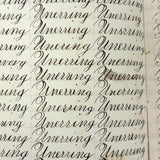 Unerring Unerring
Unerring Unerring
Unerring Unerring
Unerring Unerring
Unerring Unerring
Unerring Unerring
Unerring Unerring
Unerring Unerring
Unerring Unerring
Unerring Unerring
Unerring Unerring